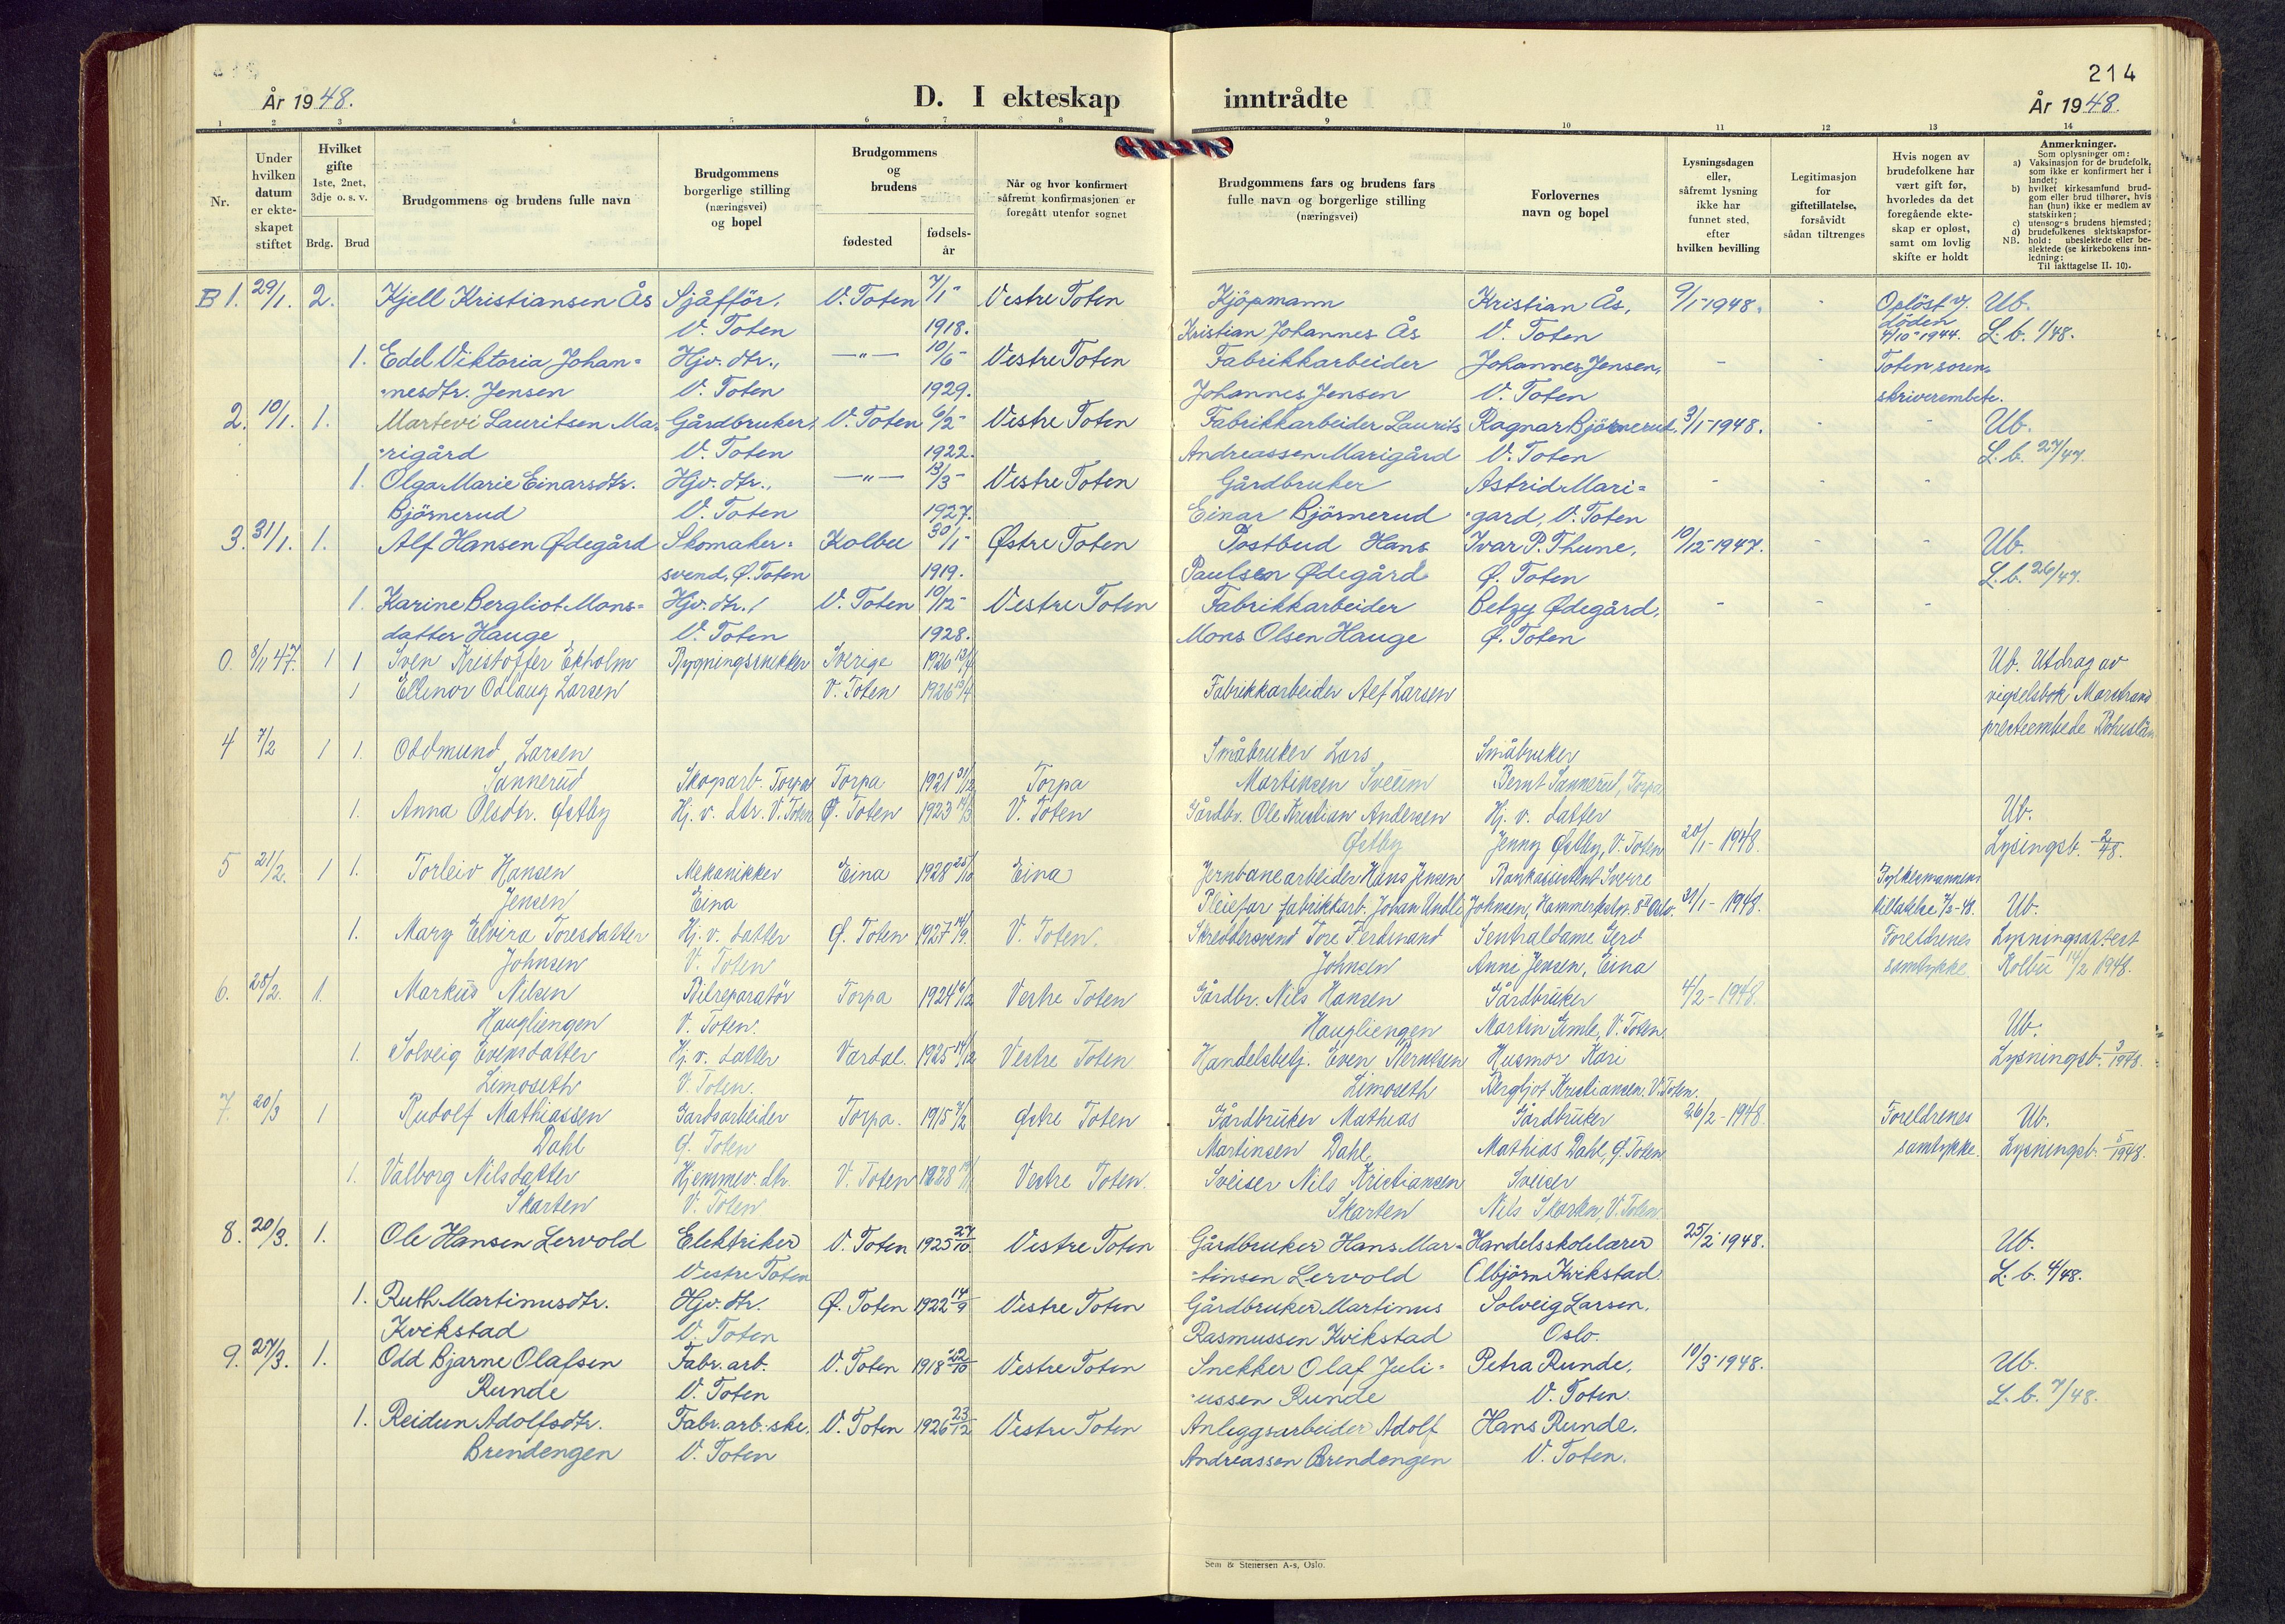 214
År 1948.
D. I ekteskap
inntrådte
År 1948.
1 2 3 4 5 6 7 8 9 10 11 12 13 14
Nr.
Under hvilken datum er ekteskapet stiftet
Hvilket gifte 1ste, 2net, 3dje o. s. v.
Brdg. Brud
Brudgommens og brudens fulle navn
Brudgommens borgerlige stilling (næringsvei) og bopel
Brudgommens og brudens
fødested
fødsels-år
Når og hvor konfirmert såfremt konfirmasjonen er foregått utenfor sognet
Brudgommens fars og brudens fars fulle navn og borgerlige stilling (næringsvei)
Forlovernes navn og bopel
Lysningsdagen eller, såfremt lysning ikke har funnet sted, efter hvilken bevilling
Legitimasjon for giftetillatelse, forsåvidt sådan tiltrenges
Hvis nogen av brudefolkene har vært gift før, hvorledes da det foregående ekteskap er opløst, samt om lovlig skifte er holdt
Anmerkninger.
Som oplysninger om:
a) Vaksinasjon for de brudefolk, som ikke er konfirmert her i landet;
b) hvilket kirkesamfund brudgom eller brud tilhører, hvis han (hun) ikke er medlem av statskirken;
c) utensogns brudens hjemsted;
d) brudefolkenes slektskapsforhold: ubeslektede eller beslektede (se kirkebokens innledning:
NB.
Til iakttagelse II. 10).
B 1. 29/1. 2. Kjell Kristiansen Ås Sjåffør, V. Toten 7/1- Vestre Toten Kjöpmann Kristian Ås, 9/1-1948. - Oplöst v. Ub.
V. Toten 1918. Kristian Johannes Ås V. Toten döden 4/10-1944. L.b. 1/48.
1. Edel Viktoria Johan= Hjv. dtr., —"— 10/6- Vestre Toten Fabrikkarbeider Johannes Jensen, - - Toten soren=
=nesdtr. Jensen V. Toten 1929. Johannes Jensen V. Toten skriverembete.
2. 10/1. 1. Martevi Lauritsen Ma= Gårdbruker, V. Toten 6/2- Vestre Toten Fabrikkarbeider Laurits Ragnar Björnerud, 3/1-1948. - - Ub.
=rigård V. Toten 1922. Andreassen Marigård V. Toten L.b. 27/47.
1. Olga Marie Einarsdtr. Hjv. dtr., —"— 13/3- Vestre Toten Gårdbruker Astrid Mari= - - -
Björnerud V. Toten 1927. Einar Björnerud =gard, V. Toten
3. 31/1. 1. Alf Hansen Ødegård Skomaker= Kolbu 30/1- Østre Toten Postbud Hans Ivar P. Thune, 10/12-1947. - - Ub.
svend, Ø. Toten 1919. Paulsen Ødegård Ø. Toten L.b. 26/47.
1. Karine Bergliot Mons= Hjv. dtr., V. Toten 10/12- Vestre Toten Fabrikkarbeider Betzy Ødegård, - - -
datter Hauge V. Toten 1928. Mons Olsen Hauge Ø. Toten
0. 8/11 47. 1 1 Sven Kristoffer Ekholm Bygningssnekker Sverige 1926 Ub. Utdrag av
1 Ellinor Odlaug Larsen V. Toten 1926 Fabrikkarbeider Alf Larsen vigselsbok Marstrand
presteembede Bohuslän
4 7/2 1 1. Oddmund Larsen Småbruker Lars Småbruker
Sannerud Skogarb. Torpa Torpa 1921 31/12 Torpa Martinsen Sveum Bernt Sannerud, Torpa
1. Anna Olsdtr. Østby Hj. v. dtr. V. Toten Ø. Toten 1923 V. Toten Gårdbr. Ole Kristian Andersen Hj. v. datter Ub.
Østby Jenny Østby, V. Toten 20/1-1948. Lysingsb. 2/48.
5 21/2. 1 1. Torleiv Hansen Mekanikker Eina 1928 25/10 Eina Jernbanearbeider Hans Jensen Bankassistent Sverre Fylkesmannens
Jensen Eina Pleiefar fabrikkarb. Johan Undli Johnsen, 31/1-1948. tillatelse 7/2-48. Ub.
1. Mary Elvira Toresdatter Hj. v. datter Ø. Toten 1927 14/9. V. Toten. Skreddersvend Tore Ferdinand Sentraldame Gerd Foreldrenes Lysningsattest
Johnsen V. Toten Johnsen Anni Jensen, Eina samtykke Kolbu 14/2 1948.
6. 28/2. 1. Markus Nilsen Bilreparatør Torpa 1924 6/12 Vestre Toten Gårdbr. Nils Hansen Gårdbruker 4/2-1948.
Haugliengen V. Toten. Haugliengen Martin Gimle, V. Toten. Ub.
1. Solveig Evensdatter Hj. v. datter Vardal. 1925 14/12 Vestre Toten Handelsbetj. Even Berntsen Husmor Kari Lysningsb. 3/1948.
Limoseth V. Toten. Limoseth Bergljot Kristiansen. V. Toten.
7. 20/3 1 Rudolf Mathiassen Gardsarbeider Torpa. 1915 7/2 Østre Toten Gårdbruker Mathias Gårdbruker 26/2-1948. Foreldrenes Ub.
Dahl Ø. Toten Martinsen Dahl Mathias Dahl, Ø. Toten samtykke. Lysningsb. 5/1948.
1. Valborg Nilsdatter Hjemmev. dtr. V. Toten 1928 Vestre Toten. Sveiser Nils Kristiansen Sveiser
Skarten V. Toten Skarten Nils Skarten V. Toten
8. 20/3. 1. Ole Hansen Lervold Elektriker V. Toten 1925 27/10. Vestre Toten Gårdbruker Hans Mar= Handelsskolelærer 25/2-1948. Ub.
Vestre Toten =tinsen Lervold Olbjörn Kvikstad. L.b. 4/48.
1. Ruth Martinusdtr. Hjv. dtr. Ø. Toten 1922 14/9 Vestre Toten Gårdbruker Martinus Solveig Larsen,
Kvikstad V. Toten Rasmussen Kvikstad Oslo
9. 27/3. 1. Odd Bjarne Olafsen Fabr. arb. V. Toten 1918 22/10 Vestre Toten Snekker Olaf Juli= Petra Runde, 10/3-1948. Ub.
Runde V. Toten =ussen Runde V. Toten. L.b. 7/48.
1. Reidun Adolfsdtr. Fabr. arb.-ske, V. Toten 1926 23/12 Vestre Toten Anleggsarbeider Adolf Hans Runde,
Brendengen V. Toten Andreassen Brendengen V. Toten.
Sem & Stenersen A-s, Oslo.